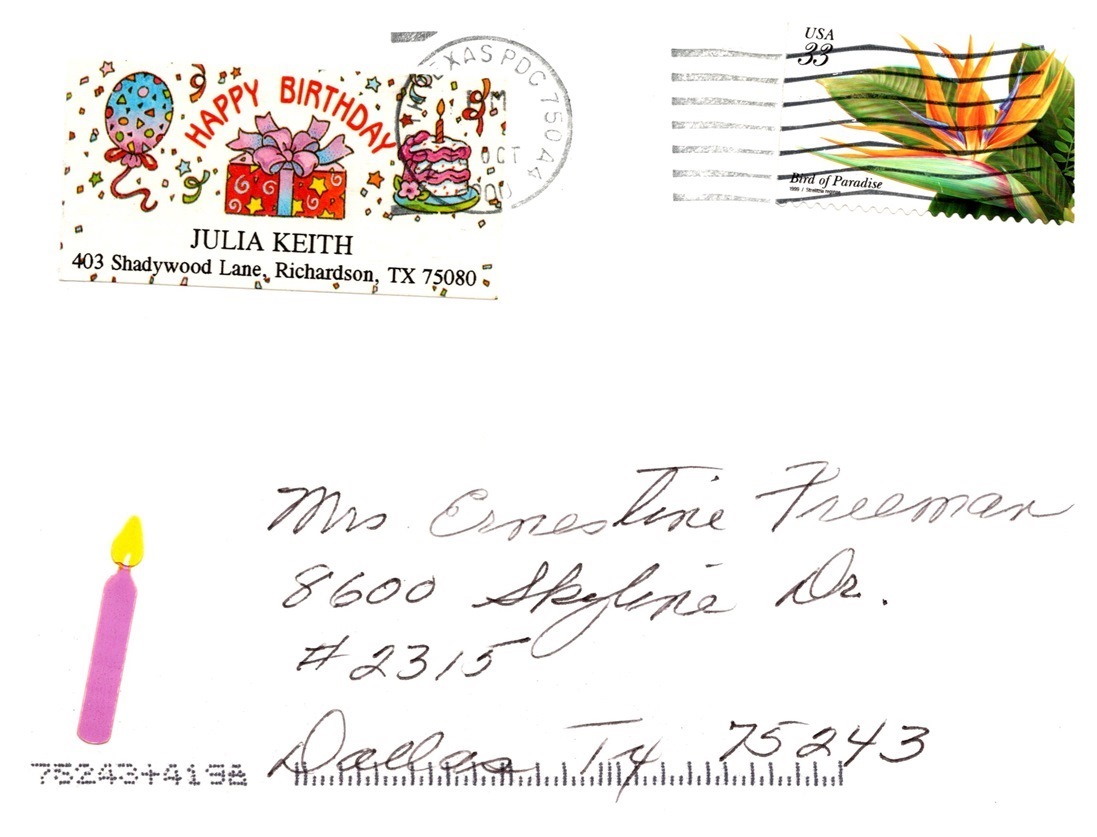 HAPPY BIRTHDAY
JULIA KEITH
403 Shadywood Lane, Richardson, TX 75080
TEXAS PDC 750A4
PM
OCT
USA
33
Bird of Paradise
1999
Mrs Ernestine Freeman
8600 Skyline Dr.
#2315
Dallas Tx 75243
75243+4198